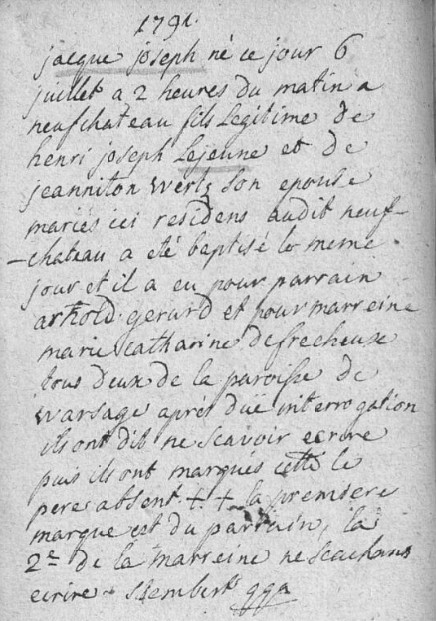 1791.
jacque joseph né ce jour 6
juillet a 2 heures du matin a
neufchateau fils Legitime de
henri joseph Lejeune et de
jeanniton wertz son epouse
mariés ici residens audit neuf-
-chateau a eté baptisé le meme
jour et il a eu pour parrain
arnold gerard et pour marreine
marie catharine defrecheux
tous deux de la paroisse de
warsage aprés düe interrogation
ils ont dit ne scavoir ecrire
puis ils ont marqués cette le
pere absent + + la premiere
marque est du parrain, la
2e de la marreine ne scachans
ecrire